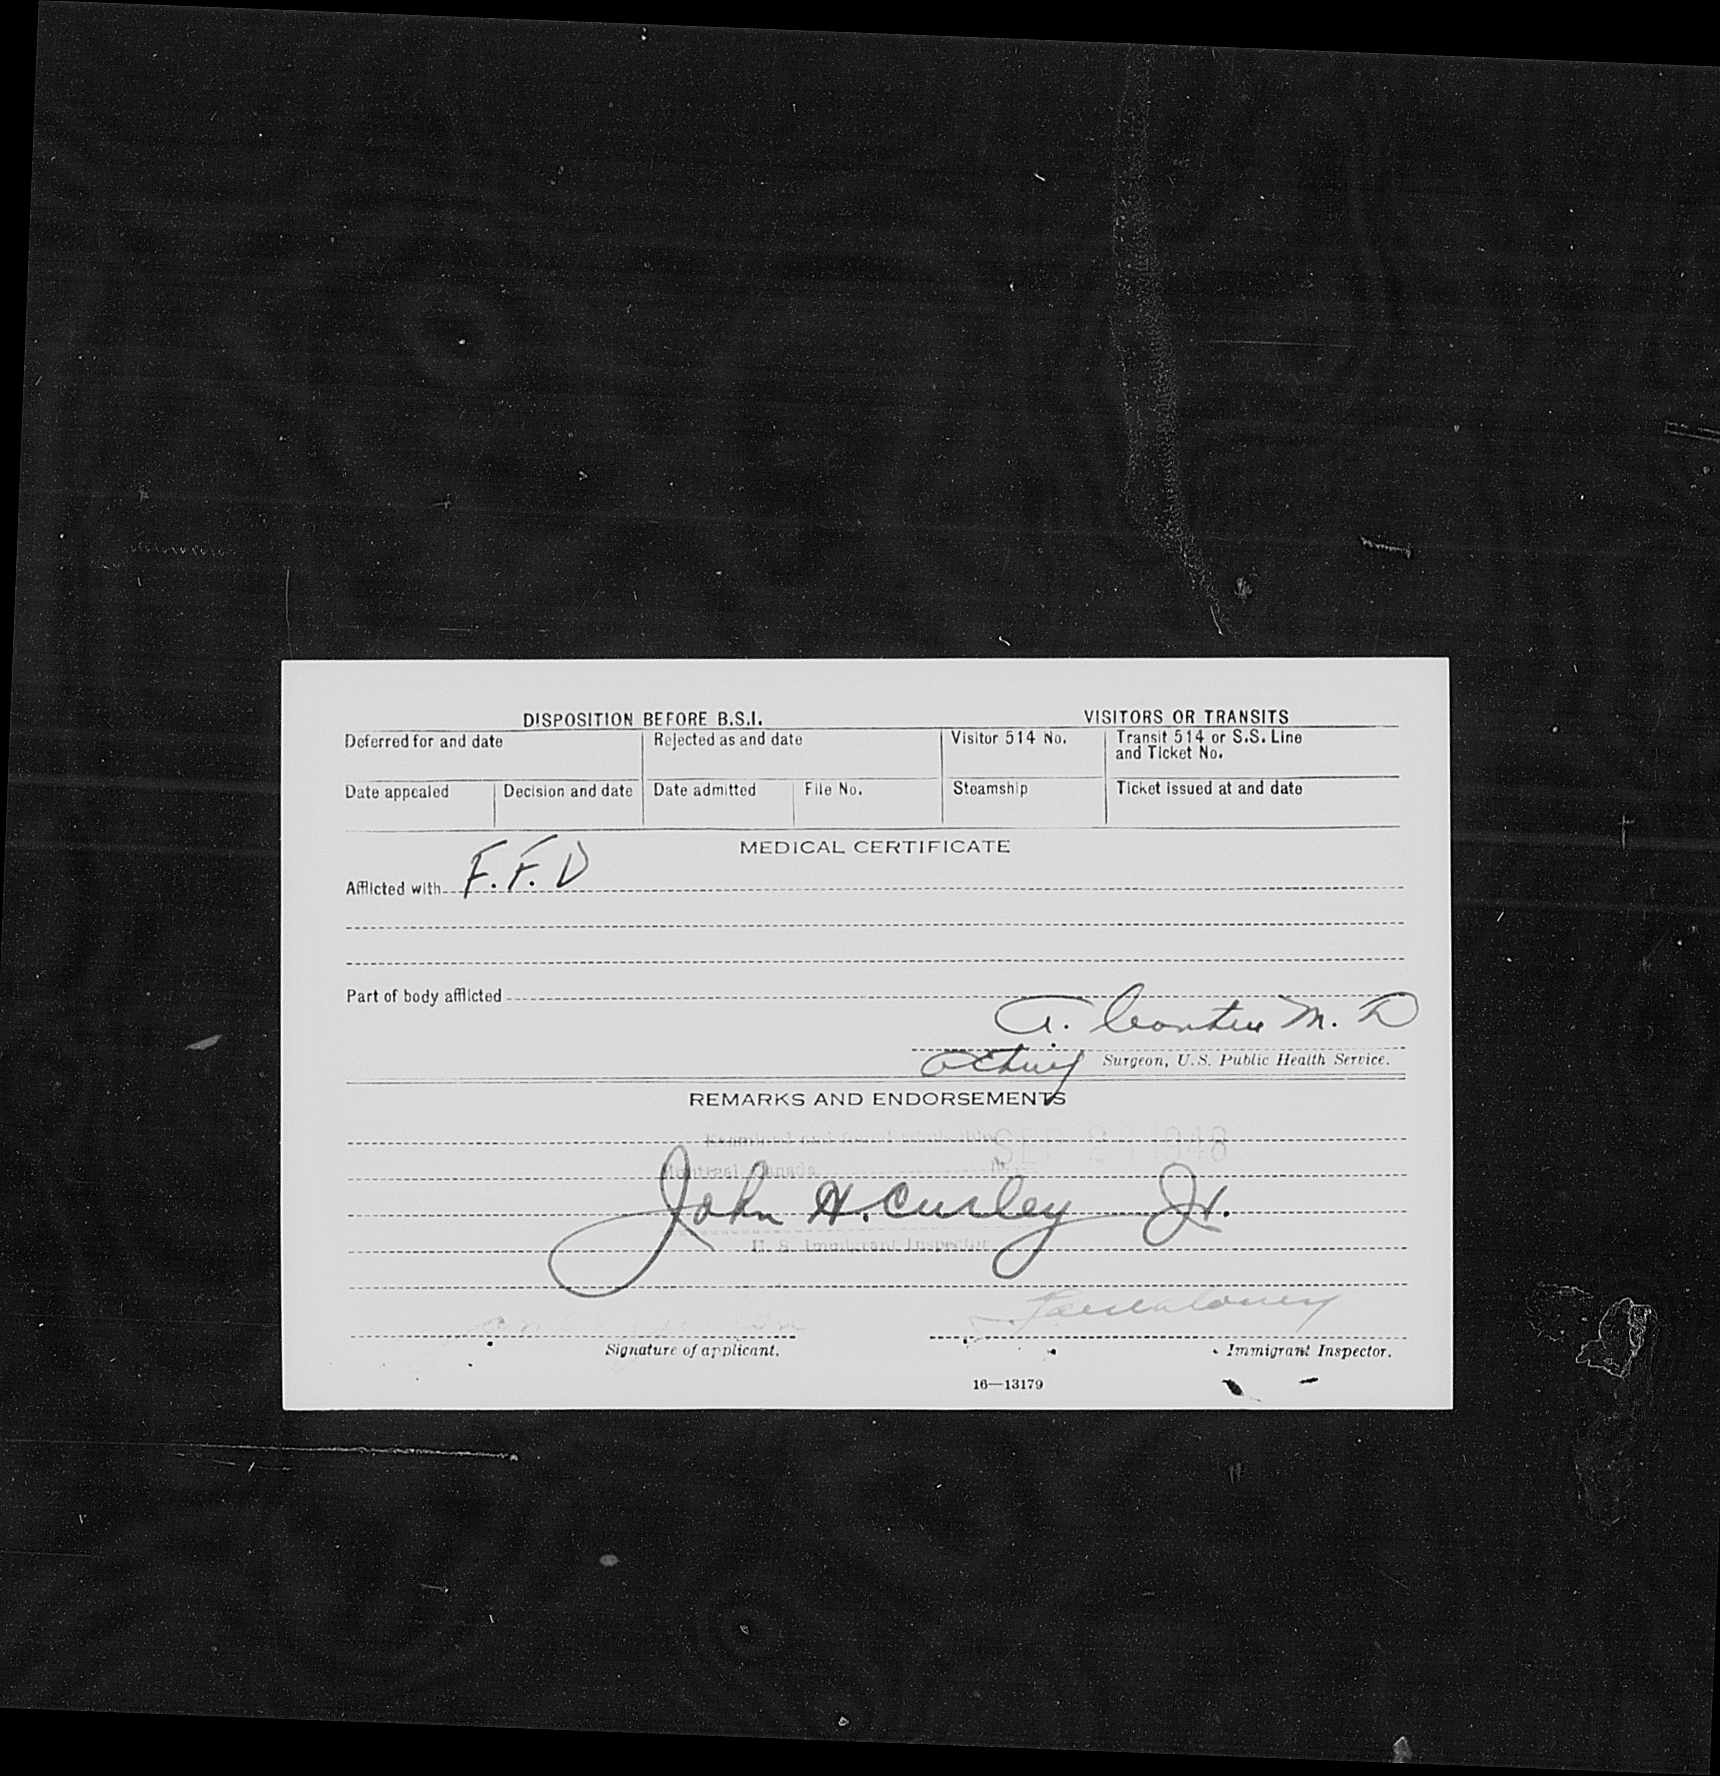 DISPOSITION BEFORE B.S.I.
VISITORS OR TRANSITS
Deferred for and date
Rejected as and date
Visitor 514 No.
Transit 514 or S.S. Line
and Ticket No.
Date appealed
Decision and date
Date admitted
File No.
Steamship
Ticket issued at and date
MEDICAL CERTIFICATE
Afflicted with F. F. D
Part of body afflicted
A. M. D
Acting Surgeon, U.S. Public Health Service.
REMARKS AND ENDORSEMENTS
Examined and SEP 1948
Montreal Canada
John H. Curley Jr.
U. S. Immigrant Inspector
Signature of applicant.
Immigrant Inspector.
16—13179